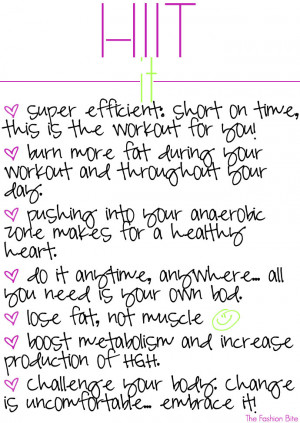 HIIT
it
super efficient: short on time,
this is the workout for you!
burn more fat during your
workout and throughout your
day.
pushing into your anaerobic
zone makes for a healthy
heart.
do it anytime, anywhere... all
you need is your own bod.
lose fat, not muscle
boost metabolism and increase
production of HGH.
challenge your body: change
is uncomfortable... embrace it!
The Fashion Bite